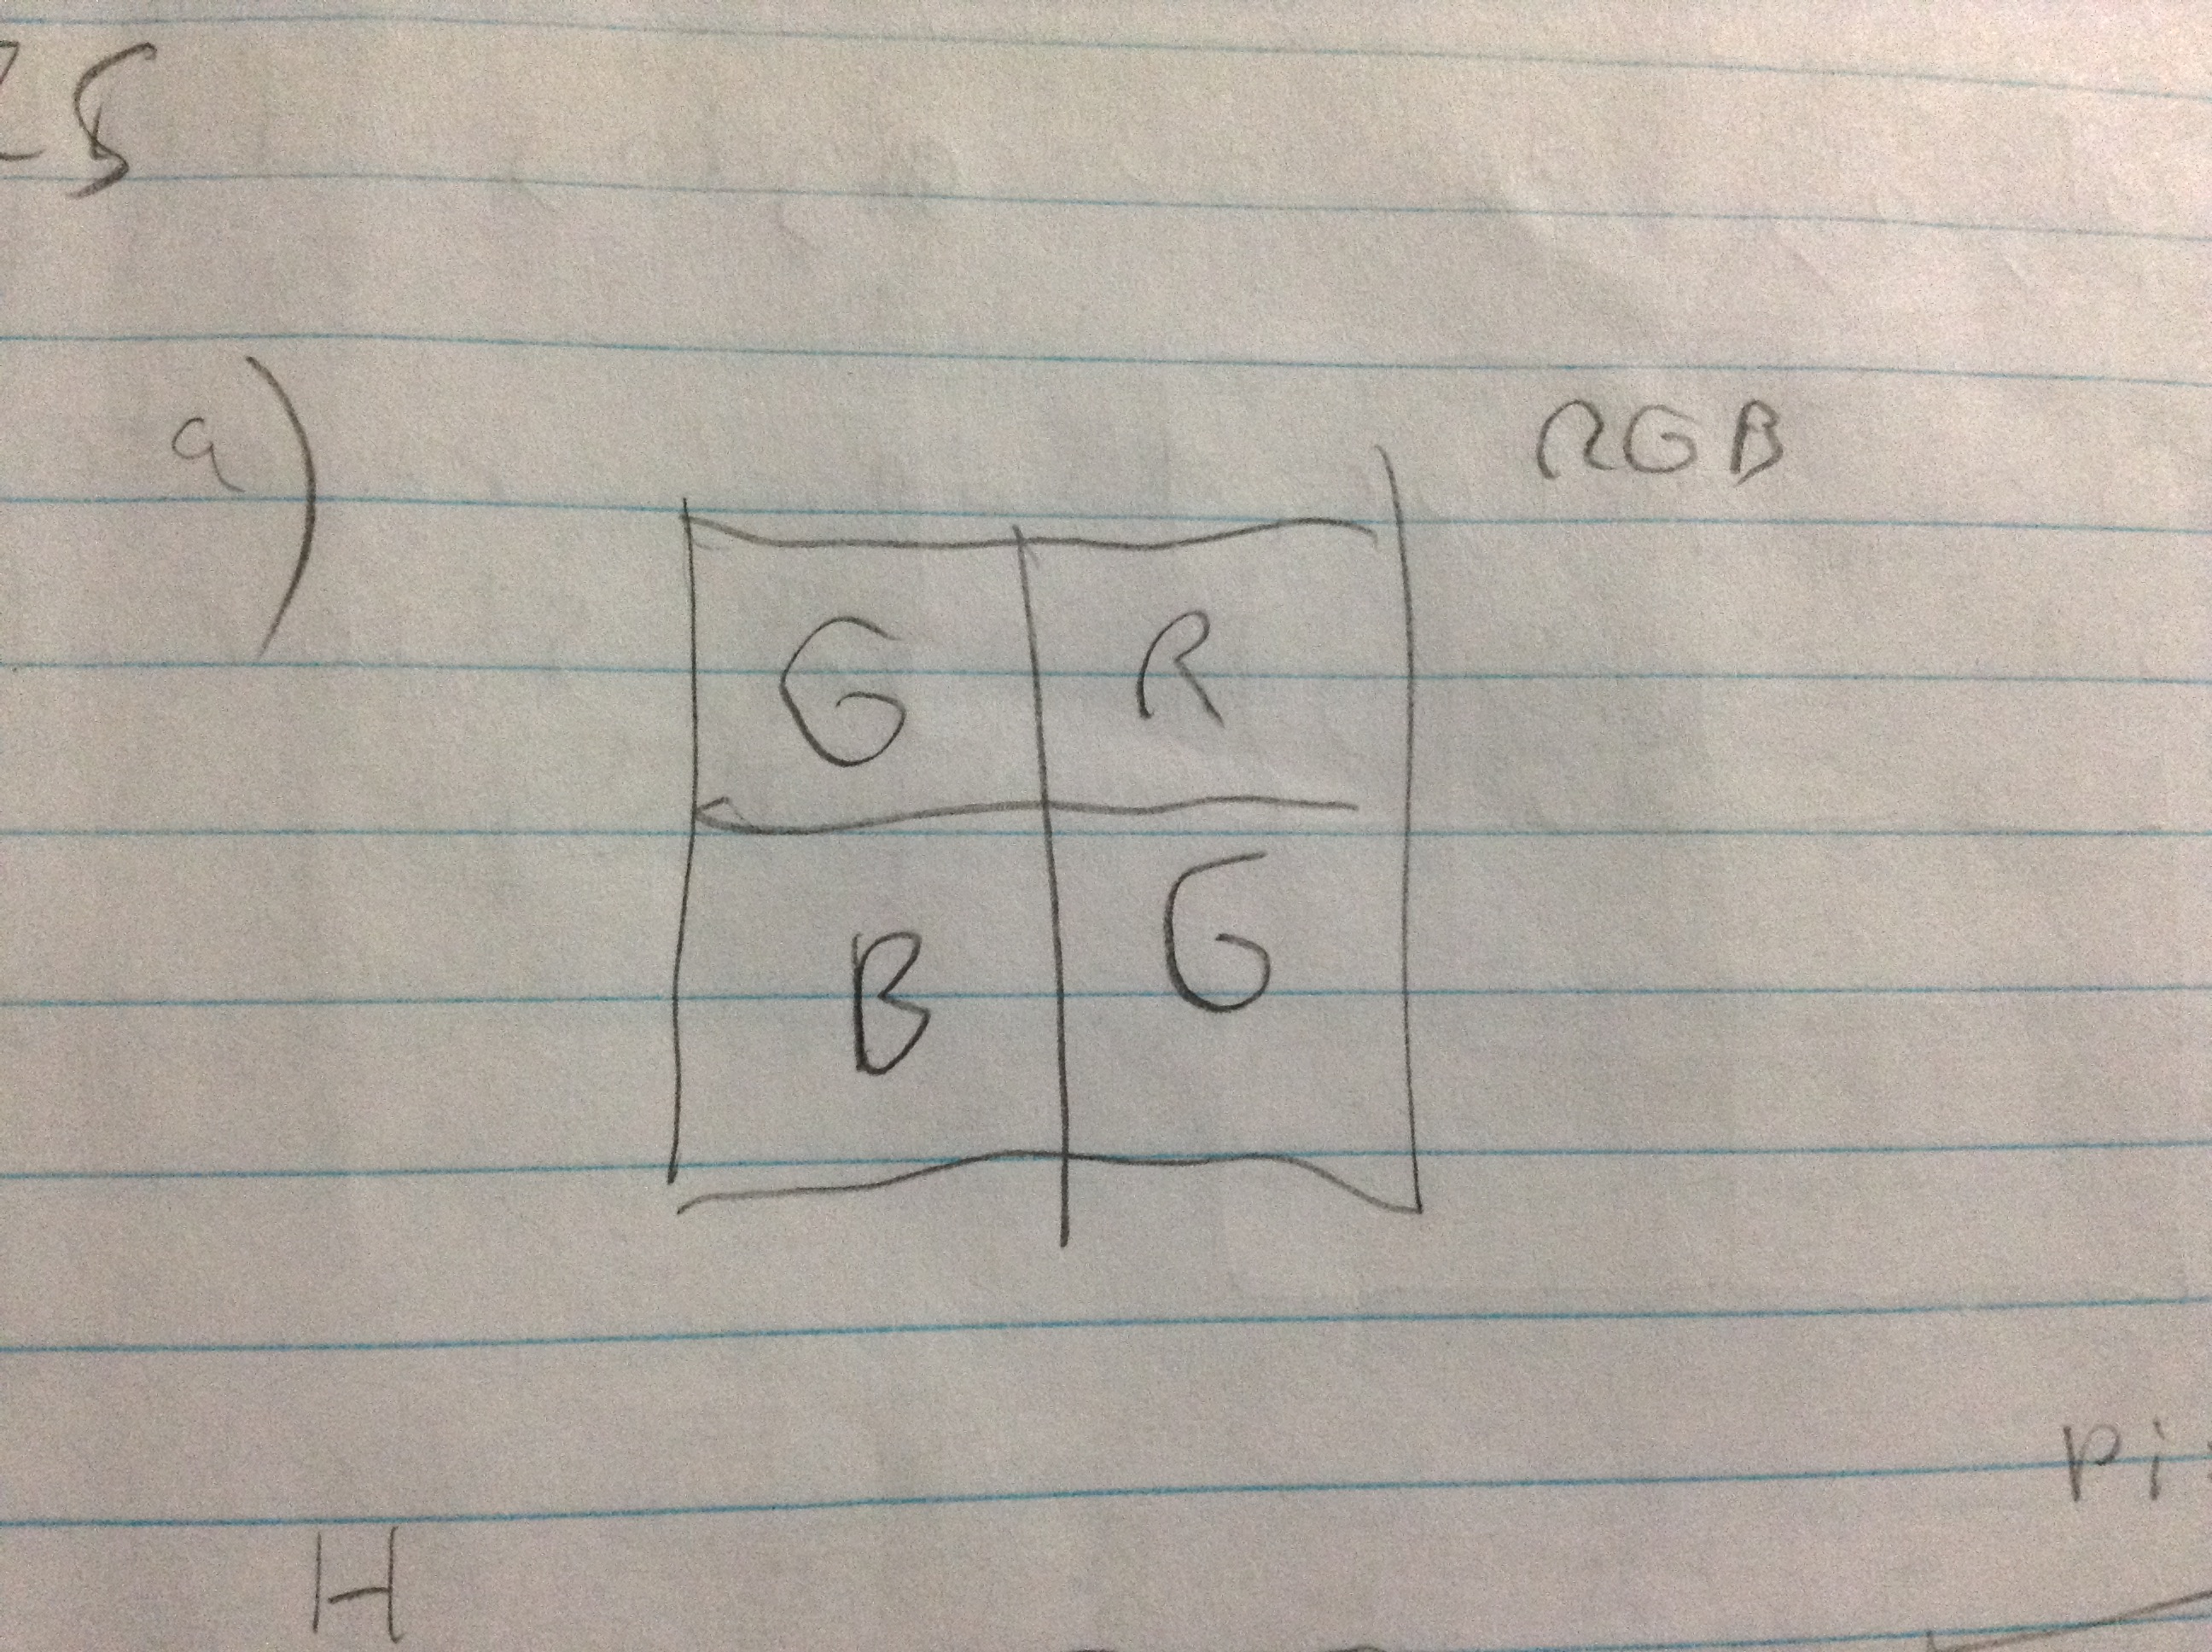 25
a)
RGB
G R
B G
Pi
H